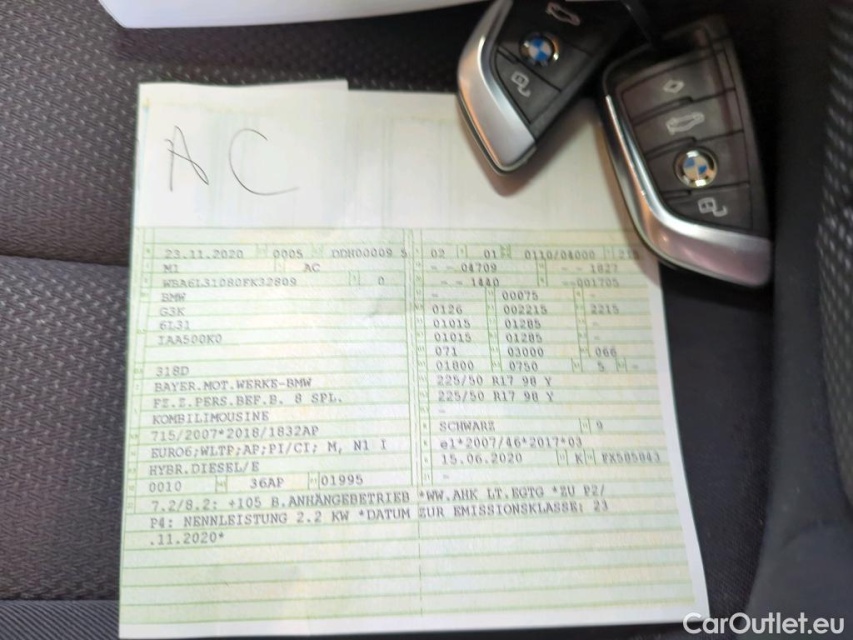 AC
23.11.2020 0005 DDH00009 5 02 01 0110/04000
M1 AC - - 04709 - - 1827
WBA6L31080FK32809 0 - - 1440 --001705
BMW - 00075 -
G3K 0126 002215 2215
6L31 01015 01285 -
IAA500K0 01015 01285 -
071 03000 066
318D 01800 0750 5 -
BAYER.MOT.WERKE-BMW 225/50 R17 98 Y
FZ.Z.PERS.BEF.B. 8 SPL. 225/50 R17 98 Y
KOMBILIMOUSINE -
715/2007*2018/1832AP SCHWARZ 9
EURO6;WLTP;AP;PI/CI; M, N1 I e1*2007/46*2017*03
HYBR.DIESEL/E 15.06.2020 K
0010 36AP 01995
7.2/8.2: +105 B.ANHÄNGEBETRIEB *WW.AHK LT.EGTG *ZU P2/
P4: NENNLEISTUNG 2.2 KW *DATUM ZUR EMISSIONSKLASSE: 23
.11.2020*
CarOutlet.eu